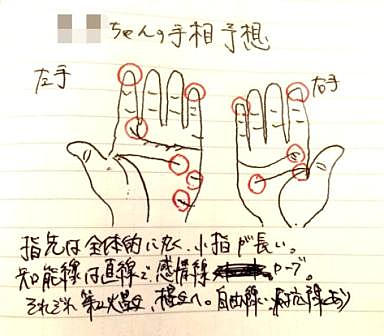 ちゃんの手相予想
左手
右手
指先は全体的に尖く、小指が長い。
知能線は直線で、感情線 カーブ。
それぞれ第二火星丘、へ。自由線い、対応線あり